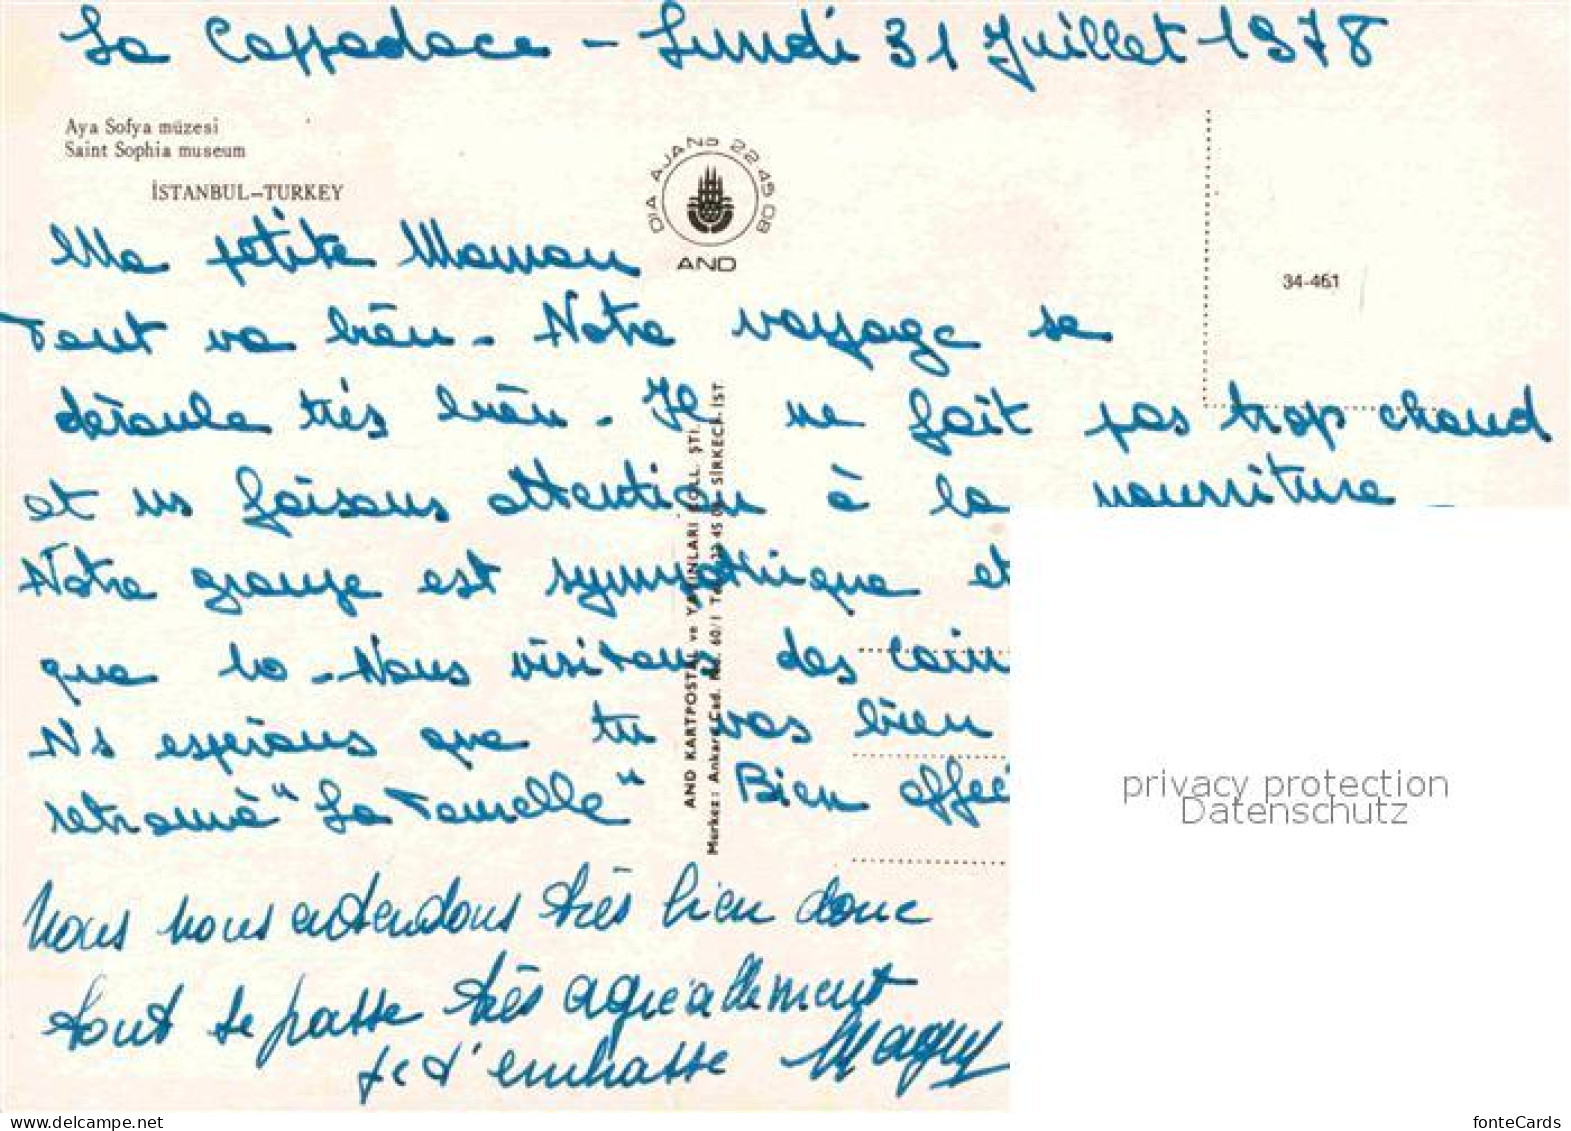 La Cappadoce - Lundi 31 Juillet 1978
Aya Sofya müzesi
Saint Sophia museum
İSTANBUL-TURKEY
DIA AJANS 22 45 08
AND
34-461
Ma petite Maman
Tout va bien - Notre voyage se
déroule très bien - Il ne fait pas trop chaud
et ns faisons attention à la nourriture -
Notre groupe est sympathique et
que - Nous visitons des coin
Ns espérons que tu vas bien
retrouvé "La Tourelle" Bien affec
Nous nous entendons très bien donc
tout se passe très agréablement
Je t'embrasse Maguy
AND KARTPOSTAL ve YAYINLARI ŞTİ.
Merkez: Ankara Cad. No. 60/1 SİRKECİ-İST
privacy protection
Datenschutz
delcampe.net
fonteCards